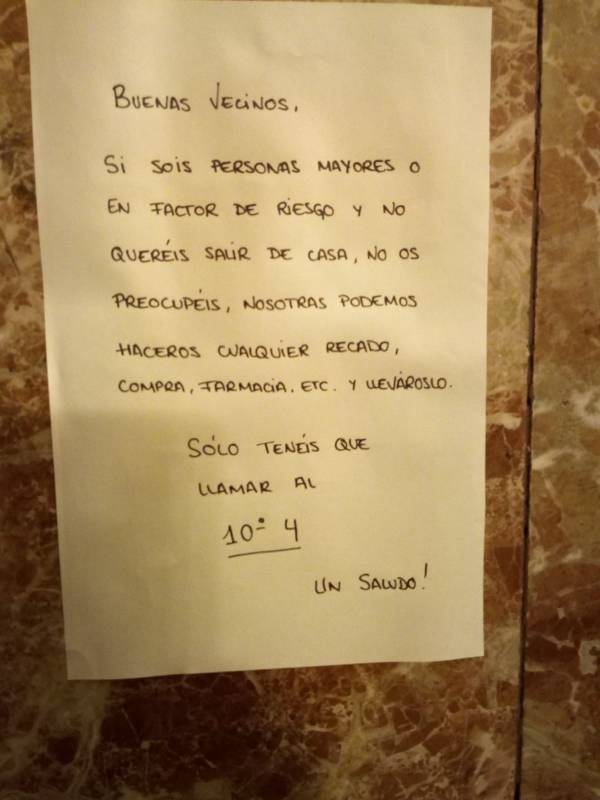 BUENAS VECINOS,
Si SOiS PERSONAS MAYORES O
EN FACTOR DE RiESGO Y NO
QUERÉiS SALiR DE CASA, NO OS
PREOCUPÉiS, NOSOTRAS PODEMOS
HACEROS CUALQUIER RECADO,
COMPRA, FARMACiA. ETC. Y LLEVÁROSLO.
SÓLO TENÉiS QUE
LLAMAR AL
10º 4
UN SALUDO!